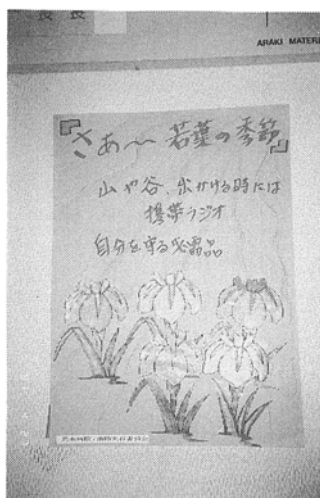 長 長
ARAKI MATERI
『さあ～ 若葉の季節』
山や谷、出かける時には
携帯ラジオ
自分を守る必需品